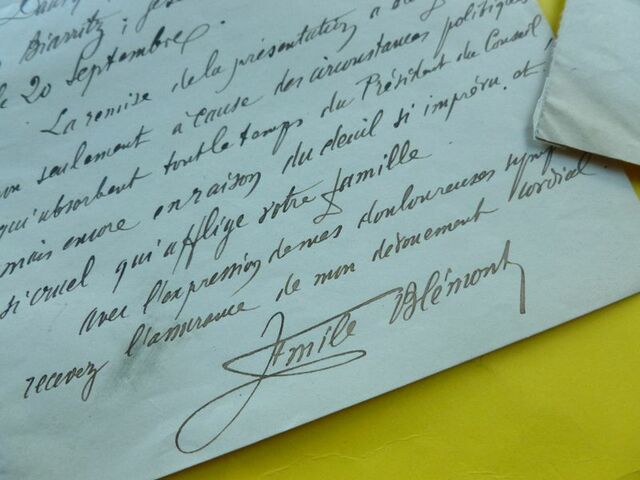 Biarritz ;
le 20 Septembre.
La remise de la présentation a dû
non seulement à cause des circonstances politiques
qui absorbent tout le temps du Président du Conseil
mais encore en raison du deuil si imprévu et
si cruel qui afflige votre famille
Avec l'expression de mes douloureuses symp
recevez l'assurance de mon dévouement cordial.
Emile Blémont